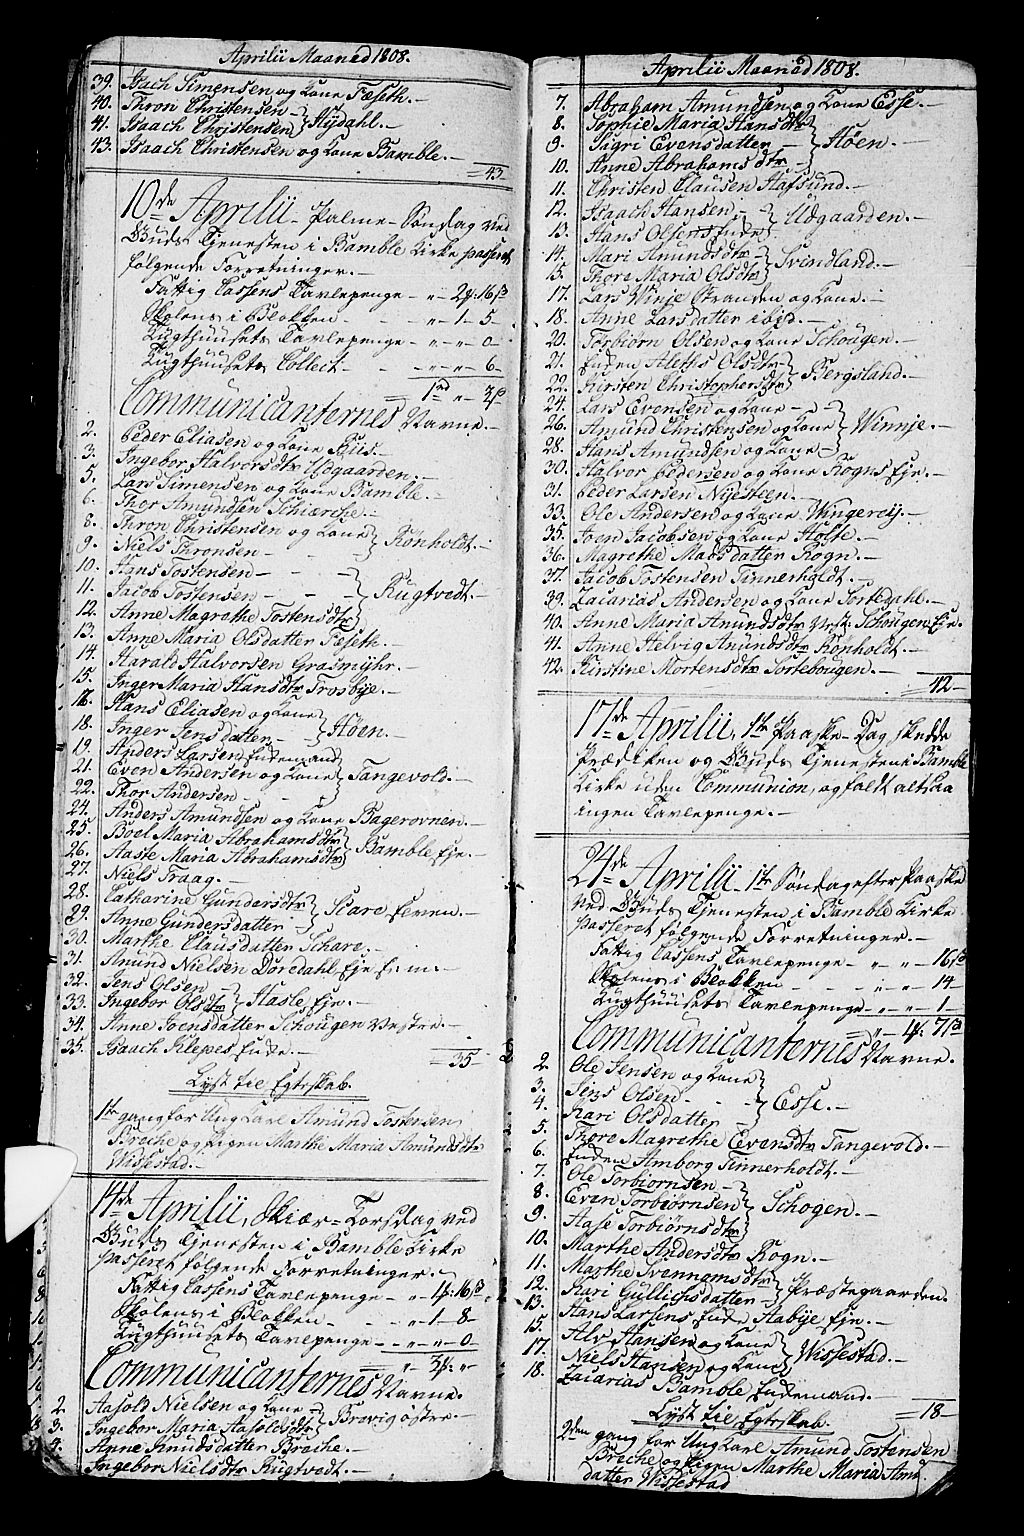 Aprilii Maaned 1808.
39. Isach Simensen og Kone Feseth.-
40. Thron Christensen-
41. Isaach Christensen } Nÿdahl.-
43. Isaach Christensen og Kone Bamble.-
=43-
10de Aprilii- Palme-Søndag ved
Guds Tjenesten i Bamble Kirke passeret
følgende Forretninger.-
Fattig Cassens Tavlepenge- " 2 16
Skolens i Blokken - - " 1 5-
Tugthuusets Tavlepenge - " " 0
Tugthuusets Collect- - " " 6-
Communicanternes Navne.-
2. Peder Eliasen og Kone
3. Ingebor Halvorsdtr Udgaarden.-
5. Lars Simensen og Kone Bamble.-
6. Thor Amundsen
8. Thron Christensen og Kone
9. Niels Thronsen- } Rönholdt.-
10. Hans Tostensen-
11. Jacob Tostensen- } Rugtvedt.-
12. Anne Magrethe Tostensdtr
13. Anne Maria Olsdatter Feseth.-
14. Harald Halvorsen Grasmÿhr.-
15. Inger Maria Hansdtr Trosbÿe.-
Hans Eliasen og Kone
18. Inger Jensdatter- } Høen.-
19. Anders Larsen Enkemand
21. Even Andersen og Kone } Tangevold.-
22. Thor Andersen
24. Anders Amundsen og Kone Bagerovnen.-
25. Boel Maria Abrahamsdtr
26. Aaste Maria Abrahamsdtr } Bamble Eje.-
27. Niels Traag.-
28. Catharine Gundersdtr
29. Anne Gundersdatter } Scare
30. Marthe Clausdatter Schare.-
31. Amund Nielsen Doredahl Eje
32. Jens Olsen
33. Ingebor Olsdtr } Hasle Eje.-
34. Anne Joensdatter Schougen Vestre.-
35. Isaach Klepes Enke.-
=35-
Lyst til Egteskab.
1te gang for Ung Karl Amund Tostensen
Breche og Pigen Marthe Maria Amundsdtr
Wissestad.-
14de Aprilii, Skiær-Torsdag ved
Guds Tjenesten i Bamble Kirke
passeret følgende Forretninger.
Fattig Cassens Tavlepenge- " 1 16
Skolens i Blokken - " 1 8-
Tugthuusets Tavlepenge- " " 0
Communicanternes Navne.
2. Aasold Nielsen og Kone
3. Ingebor Maria Aasoldsdtr } Brevig østre.-
4. Anne Knudsdatter Breche.-
Ingebor Nielsdtr Rugtvedt.-
Aprilii Maaned 1808.
7. Abraham Amundsen og Kone Esse.-
8. Sophie Maria Hansdtr
9. Sigri Evensdatter- } Høen.-
10. Anne Abrahamsdtr
11. Christen Clausen Hafsund.-
12. Isaach Hansen,-
13. Hans Olsens Enke } Udgaarden.-
14. Mari Amundsdtr
15. Thore Maria Olsdtr } Svindland.-
17. Lars Winje Stranden og Kone.-
18. Anne Larsdatter ibid.-
20. Torbiørn Olsen og Kone Schougen.-
21. Enken Alethe Olsdtr
22. Kirsten Christophersdtr } Bergsland.-
24. Lars Evensen og Kone-
26. Amund Christensen og Kone } Winnje.-
28. Hans Amundsen og Kone-
30. Halvor Pedersen og Kone Rogns Eje.-
31. Peder Larsen Nÿesteen.-
33. Ole Andersen og Kone Wingereij.-
35. Joen Jacobsen og Kone Holte.-
36. Magrethe Madsdatter Rogn.-
37. Jacob Tostensen Tinnerholdt.-
39. Zacarias Andersen og Kone Sortedahl.-
40. Anne Maria Amundsdtr Vest: Schougen Eje.
41. Anne Helvig Amundsdtr Rönholdt.-
42. Kirstine Mortensdtr Sortebougen.-
=42-
17de Aprilii, 1te Paaske-Dag skedde
Prædiken og Guds Tjenesten i Bamble
Kirke uden Communion, og faldt altsaa
ingen Tavlepenge.-
24de Aprilii- 1te Søndag efter Paaske
ved Guds Tjenesten i Bamble Kirke
passeret følgende Forretninger.-
Fattig Cassens Tavlepenge- " " 16
Skolens i Blokken - - " " 14-
Tugthuusets Tavlepenge- " " 1-
Communicanternes Navne.
2. Ole Jensen og Kone
3. Jens Olsen
4. Kari Olsdatter } Esse.-
5. Thore Magrethe Evensdtr Tangevold.-
6. Enken Amborg Tinnerholdt.-
7. Ole Torbiörnsen-
8. Even Torbiörnsen } Schogen.-
9. Aase Torbiörnsdtr
10. Marthe Andersdtr Rogn.-
11. Marthe Svennomsdtr
12. Kari Gullichsdatter- } Præstegaarden.
13. Hans Larsens Enke Aabÿe Eje.-
15. Alv Hansen og Kone
17. Niels Hansen og Kone } Wissestad.-
18. Zacarias Bamble Enkemand.-
=18-
Lyst til Egteskab.
2den gang for Ung Karl Amund Tostensen
Breche og Pigen Marthe Maria Amunds
datter Wissestad